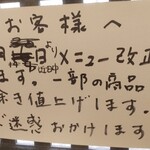 お客様へ
日より メニュー改正
ます。一部の商品
除き値上げします。
ご迷惑おかけします